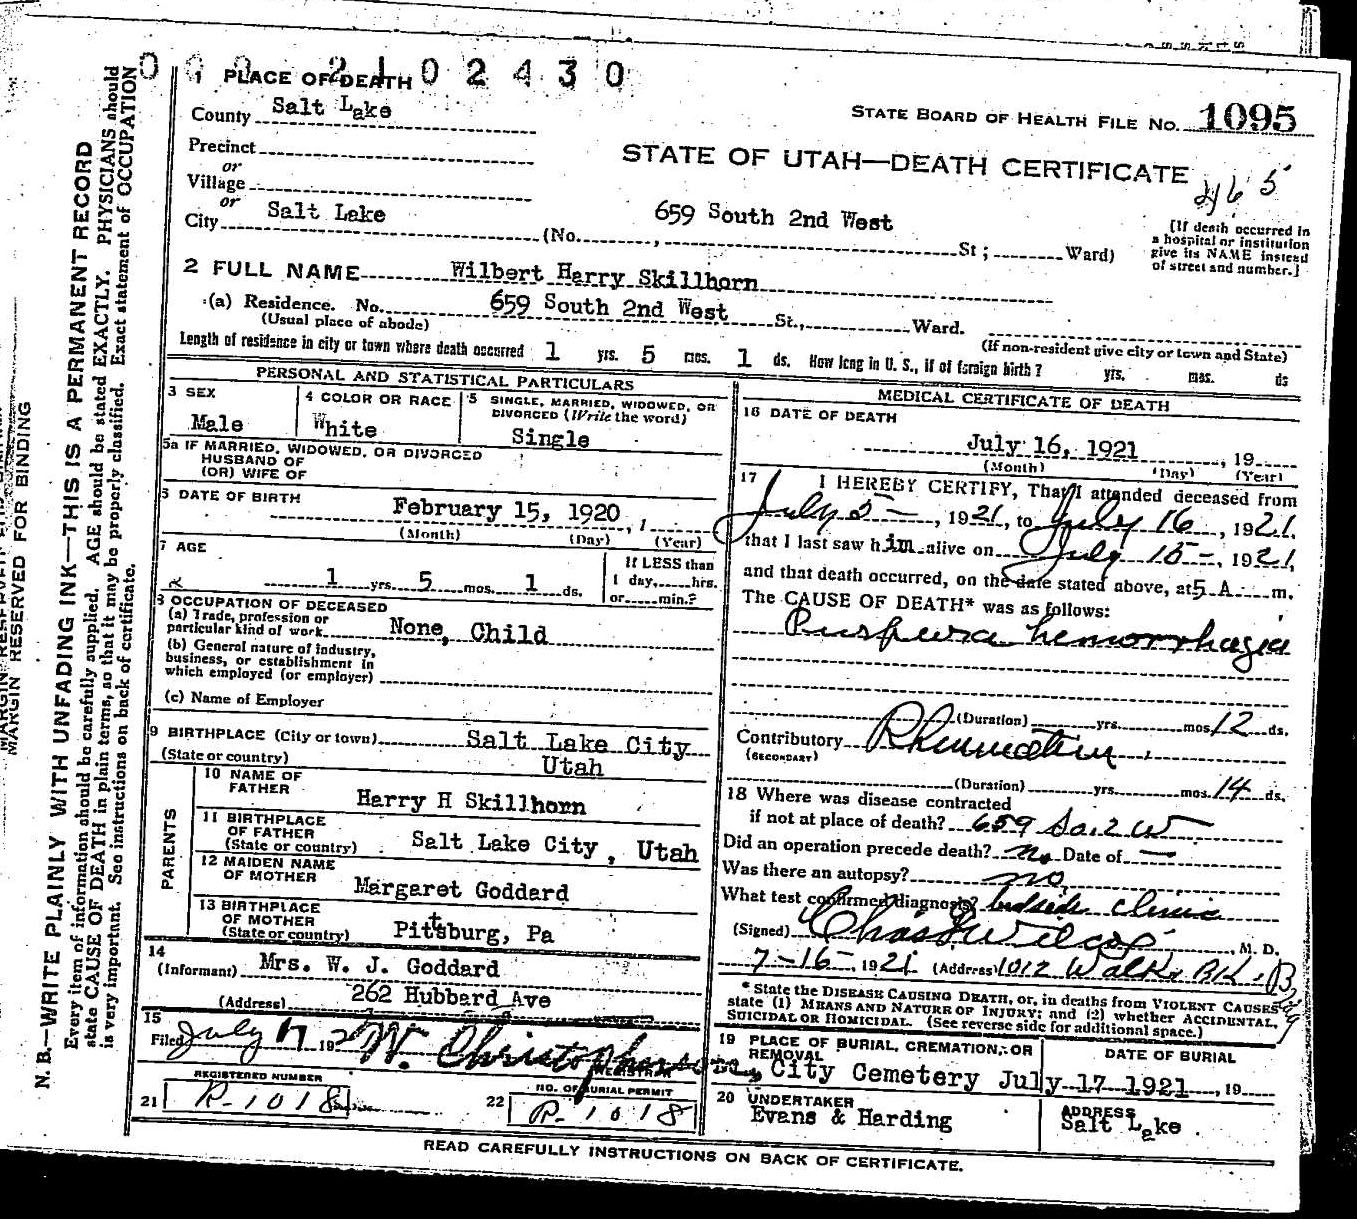 0 0 0 2 1 0 2 4 3 0
1 PLACE OF DEATH
County Salt Lake
STATE BOARD OF HEALTH FILE No. 1095
Precinct
or
Village
STATE OF UTAH—DEATH CERTIFICATE
465
or
City Salt Lake (No. 659 South 2nd West St; Ward)
[If death occurred in
a hospital or institution
give its NAME instead
of street and number.]
2 FULL NAME Wilbert Harry Skillhorn
(a) Residence. No. 659 South 2nd West St., Ward.
(Usual place of abode)
(If non-resident give city or town and State)
Length of residence in city or town where death occurred 1 yrs. 5 mos. 1 ds. How long in U. S., if of foreign birth? yrs. mos. ds
PERSONAL AND STATISTICAL PARTICULARS
3 SEX
Male
4 COLOR OR RACE
White
5 SINGLE, MARRIED, WIDOWED, OR
DIVORCED (Write the word)
Single
5a IF MARRIED, WIDOWED, OR DIVORCED
HUSBAND OF
(OR) WIFE OF
DATE OF BIRTH
February 15, 1920, 1
(Month) (Day) (Year)
7 AGE
1 yrs. 5 mos. 1 ds.
If LESS than
1 day, hrs.
or min.?
8 OCCUPATION OF DECEASED
(a) Trade, profession or
particular kind of work None, Child
(b) General nature of industry,
business, or establishment in
which employed (or employer)
(c) Name of Employer
9 BIRTHPLACE (City or town) Salt Lake City
(State or country) Utah
PARENTS
10 NAME OF
FATHER Harry H Skillhorn
11 BIRTHPLACE
OF FATHER
(State or country) Salt Lake City, Utah
12 MAIDEN NAME
OF MOTHER Margaret Goddard
13 BIRTHPLACE
OF MOTHER
(State or country) Pittsburg, Pa
14
(Informant) Mrs. W. J. Goddard
(Address) 262 Hubbard Ave
15
Filed July 17 192 W. Christophersen
REGISTRAR
REGISTERED NUMBER
21 R-1018
NO. OF BURIAL PERMIT
22 R-1018
MEDICAL CERTIFICATE OF DEATH
16 DATE OF DEATH
July 16, 1921, 19
(Month) (Day) (Year)
17 I HEREBY CERTIFY, That I attended deceased from
July 5-, 1921, to July 16, 1921.
that I last saw him alive on July 15-, 1921,
and that death occurred, on the date stated above, at 5 A m.
The CAUSE OF DEATH* was as follows:
Purpura hemorrhagia
(Duration) yrs. mos 12 ds.
Contributory Rheumatism
(SECONDARY)
(Duration) yrs. mos. 14 ds.
18 Where was disease contracted
if not at place of death? 659 So. 2 W
Did an operation precede death? no Date of —
Was there an autopsy? no
What test confirmed diagnosis? bedside clinic
(Signed) Chas F Wilcox, M. D.
7-16-, 1921 (Address) 1012 Walker Bk. Bldg
* State the DISEASE CAUSING DEATH, or, in deaths from VIOLENT CAUSES
state (1) MEANS AND NATURE OF INJURY; and (2) whether ACCIDENTAL,
SUICIDAL OR HOMICIDAL. (See reverse side for additional space.)
19 PLACE OF BURIAL, CREMATION, OR
REMOVAL
City Cemetery
DATE OF BURIAL
July 17 1921, 19
20 UNDERTAKER
Evans & Harding
ADDRESS
Salt Lake
READ CAREFULLY INSTRUCTIONS ON BACK OF CERTIFICATE.
MARGIN RESERVED FOR BINDING
N. B.—WRITE PLAINLY WITH UNFADING INK—THIS IS A PERMANENT RECORD
Every item of information should be carefully supplied. AGE should be stated EXACTLY. PHYSICIANS should
state CAUSE OF DEATH in plain terms, so that it may be properly classified. Exact statement of OCCUPATION
is very important. See instructions on back of certificate.